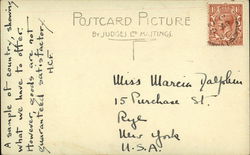 POSTCARD PICTURE
BY JUDGES LTD HASTINGS
A sample of country, showing
what we have to offer.
However, goods are not
guaranteed satisfactory.
H.C.F.
Miss Marcia Dalphin
15 Purchase St.
Rye
New York
U.S.A.